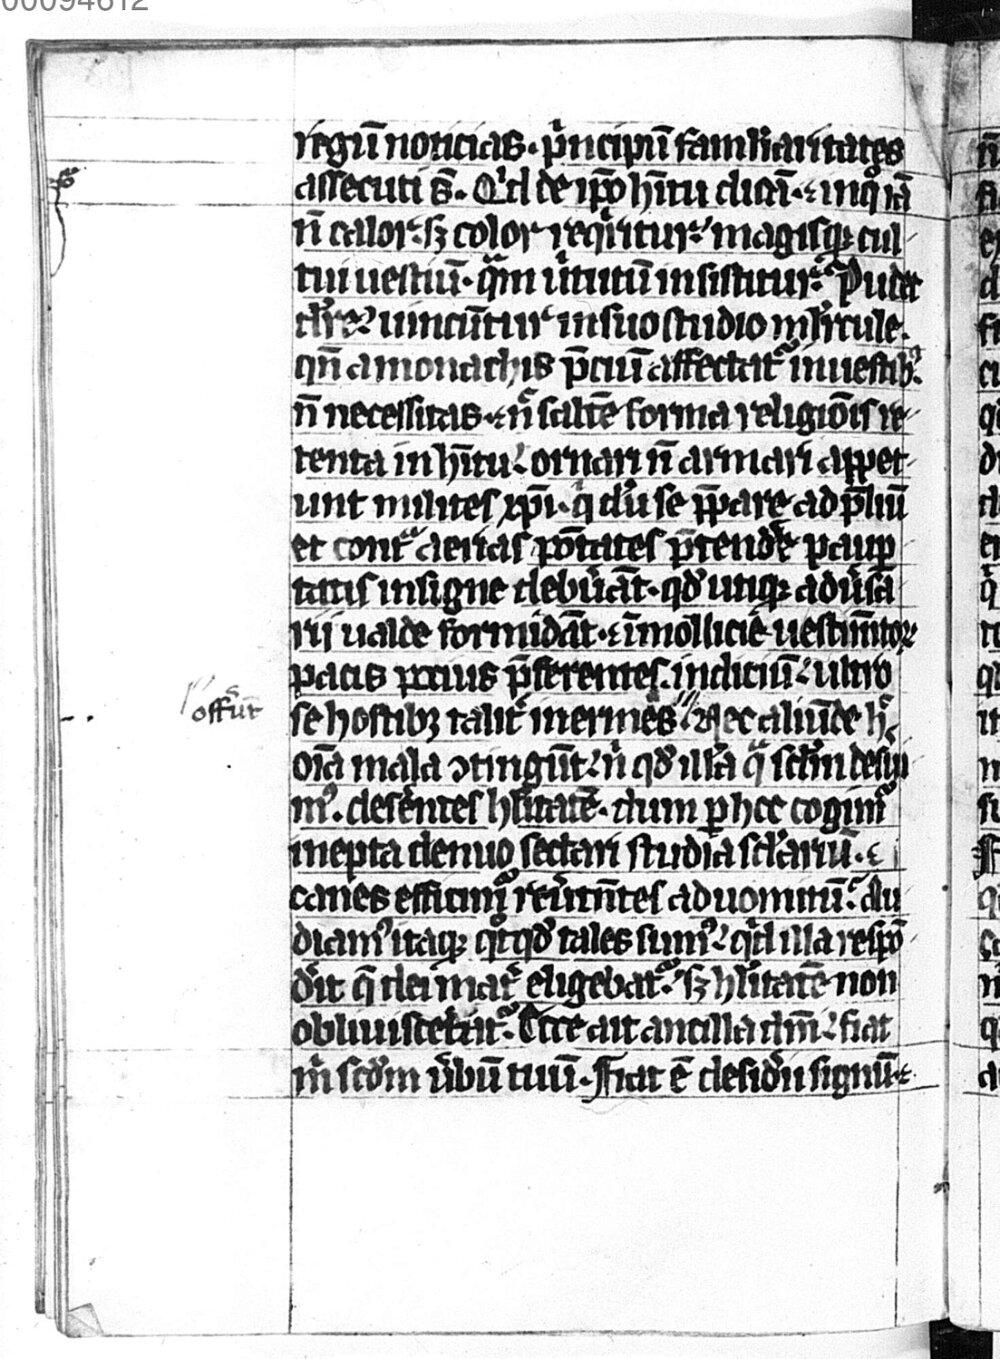 00094612
regū noticias. pͥncipū familiaritates
assecuti s̄. Qͥd de ip̄o hītu dicā. ⁊ inqͦ iā
n̄ calor: sꝫ color reqͥritur: magisqꝫ cul
tui uestiū. qͣm uͥtutū insistitur. Pudet
dic̄e? uincūtur in suo studio mulͥercule.
qn̄ a monachis p̄ciū affectatᷣ in uestibꝰ.
n̄ necessitas. ⁊ n̄ saltē forma religiōis re
tenta in hītu. ornari n̄ armari appet
unt milites xp̄i. qͥ dū se p̄pare ad p̄liū
et contͣ aerias potͣtates p̄tendͤe paup
tatis insigne debuͤāt. qd̓ utiqꝫ aduͤsa
rij ualde formidāt. ⁊ ī mollicie uestimͭtoꝝ
pacis pocius p̄ferentes indiciū. ultro
offerūt
se hostibꝫ talitͤ inermes Nec aliūde hͨ
oīa mala ↄtingūt. nͥ qd̓ illā qͣ sc̄lm deserui
mꝰ. desͤentes hūilitatē. dum ꝑ hec cogimͬ
inepta denuo sectari studia sc̄lariū. ⁊
canes efficimͬ reuͤtentes ad uomitū. Au
diamꝰ itaqꝫ qͦtqͦd tales sumꝰ. qͥd illa respō
dͤit q̄ dei matͤ eligebatᷣ. sꝫ hūilitatē non
obliuiscebatᷣ. Ecce ait ancilla dn̄i. fiat
mͥ scd̓m uͤbū tuū. Fiat ē desidͤii signū. ⁊